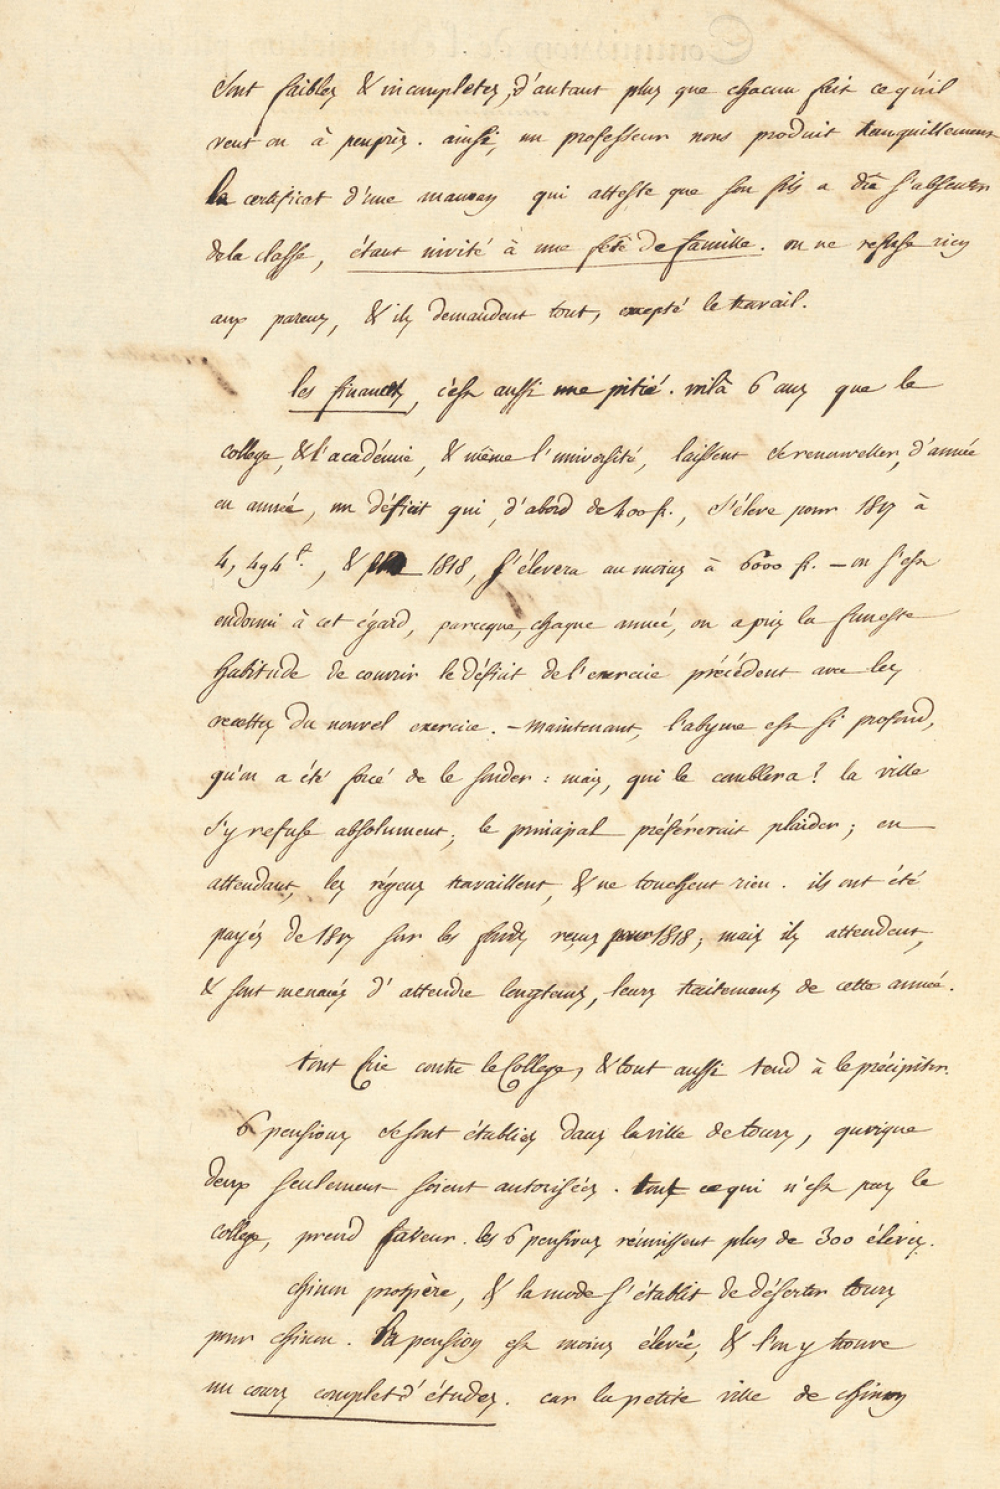 sont faibles & incomplètes, d'autant plus que chacun fait ce qu'il
veut ou à peuprès. ainsi, un professeur nous produit tranquillement
le certificat d'une maman qui atteste que son fils a dû s'absenter
dela classe, étant invité à une fête de famille. on ne refuse rien
aux parens, & ils demandent tout, excepté le travail.
les finances, c'est aussi une pitié. voilà 6 ans que le
college, & l'académie, & même l'université, laissent se renouveller, d'année
en année, un déficit qui, d'abord de 400 fr., s'éleve pour 1817 à
4,494 f., & pour 1818, s'élevera au moins à 6000 fr. – on s'est
endormi à cet égard, parceque, chaque année, on a pris la funeste
habitude de couvrir le déficit de l'exercice précédent avec les
recettes du nouvel exercice. – maintenant, l'abyme est si profond,
qu'on a été forcé de le sonder : mais, qui le comblera? la ville
s'y refuse absolument; le principal préférerait plaider; en
attendant, les régens travaillent, & ne touchent rien. ils ont été
payés de 1817 sur les fonds reçus pour 1818; mais ils attendent,
& sont menacés d'attendre longtems, leurs traitemens de cette année.
tout crie contre le College, & tout aussi tend à le précipiter.
6 pensions se sont établies dans la ville de tours, quoique
deux seulement soient autorisées. tout ce qui n'est pas le
college, prend faveur. les 6 pensions réunissent plus de 300 élèves.
chinon prospère, & la mode s'établit de déserter tours
pour chinon. la pension est moins élevée, & l'on y trouve
un cours complet d'études. car la petite ville de chinon